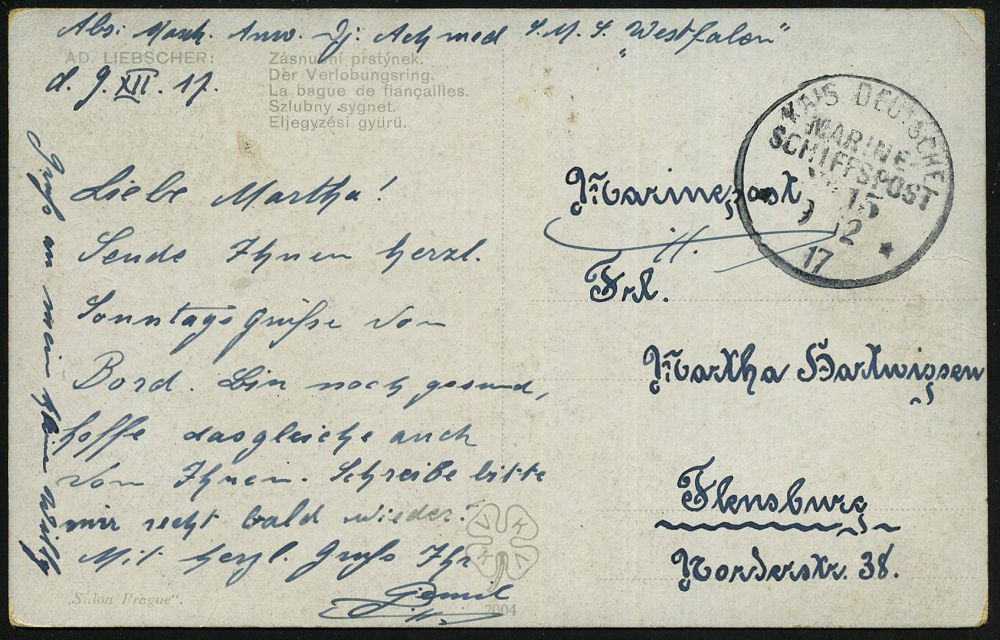 Abs: Masch. Anw. Dj: Achmed S.M.S. "Westfalen"
d. 9. XII. 17.
AD. LIEBSCHER:
Zásnubní prstýnek.
Der Verlobungsring.
La bague de fiançailles.
Szlubny sygnet.
Eljegyzési gyürü.
Liebe Martha!
Sende Ihnen herzl.
Sonntagsgrüße von
Bord. Bin noch gesund,
hoffe dasgleiche auch
von Ihnen. Schreibe bitte
mir recht bald wieder.
Mit herzl. Gruß Ihr
Djemil
Gruß an mein
"Salon Prague".
VKKV
2004
Marinepost
Frl.
Martha Hartwigsen
Flensburg
Norderstr. 38.
KAIS. DEUTSCHE
MARINE-
SCHIFFSPOST
No 15
9 12
17 *